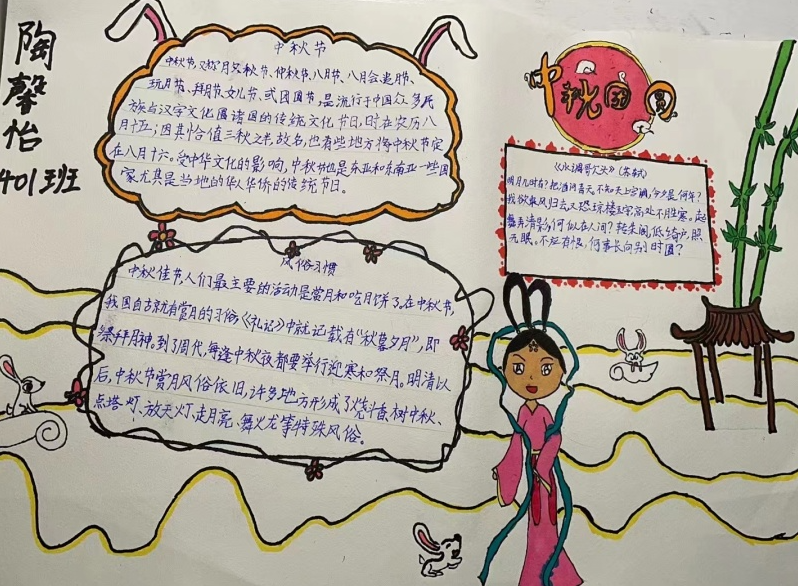 陶馨怡
401班
中秋节
中秋节,又称月夕、秋节、仲秋节、八月节、八月会、追月节、
玩月节、拜月节、女儿节、或团圆节,是流行于中国众多民
族与汉字文化圈诸国的传统文化节日,时在农历八
月十五;因其恰值三秋之半,故名,也有些地方将中秋节定
在八月十六。受中华文化的影响,中秋节也是东亚和东南亚一些国
家尤其是当地的华人华侨的传统节日。
中秋团圆
《水调歌头》(苏轼)
明月几时有?把酒问青天。不知天上宫阙,今夕是何年?
我欲乘风归去,又恐琼楼玉宇,高处不胜寒。起
舞弄清影,何似在人间?转朱阁,低绮户,照
无眠。不应有恨,何事长向别时圆?
风俗习惯
中秋佳节,人们最主要的活动是赏月和吃月饼了。在中秋节,
我国自古就有赏月的习俗,《礼记》中就记载有"秋暮夕月",即
祭拜月神。到了周代,每逢中秋夜都要举行迎寒和祭月。明清以
后,中秋节赏月风俗依旧,许多地方形成了烧斗香、树中秋、
点塔灯、放天灯、走月亮、舞火龙等特殊风俗。